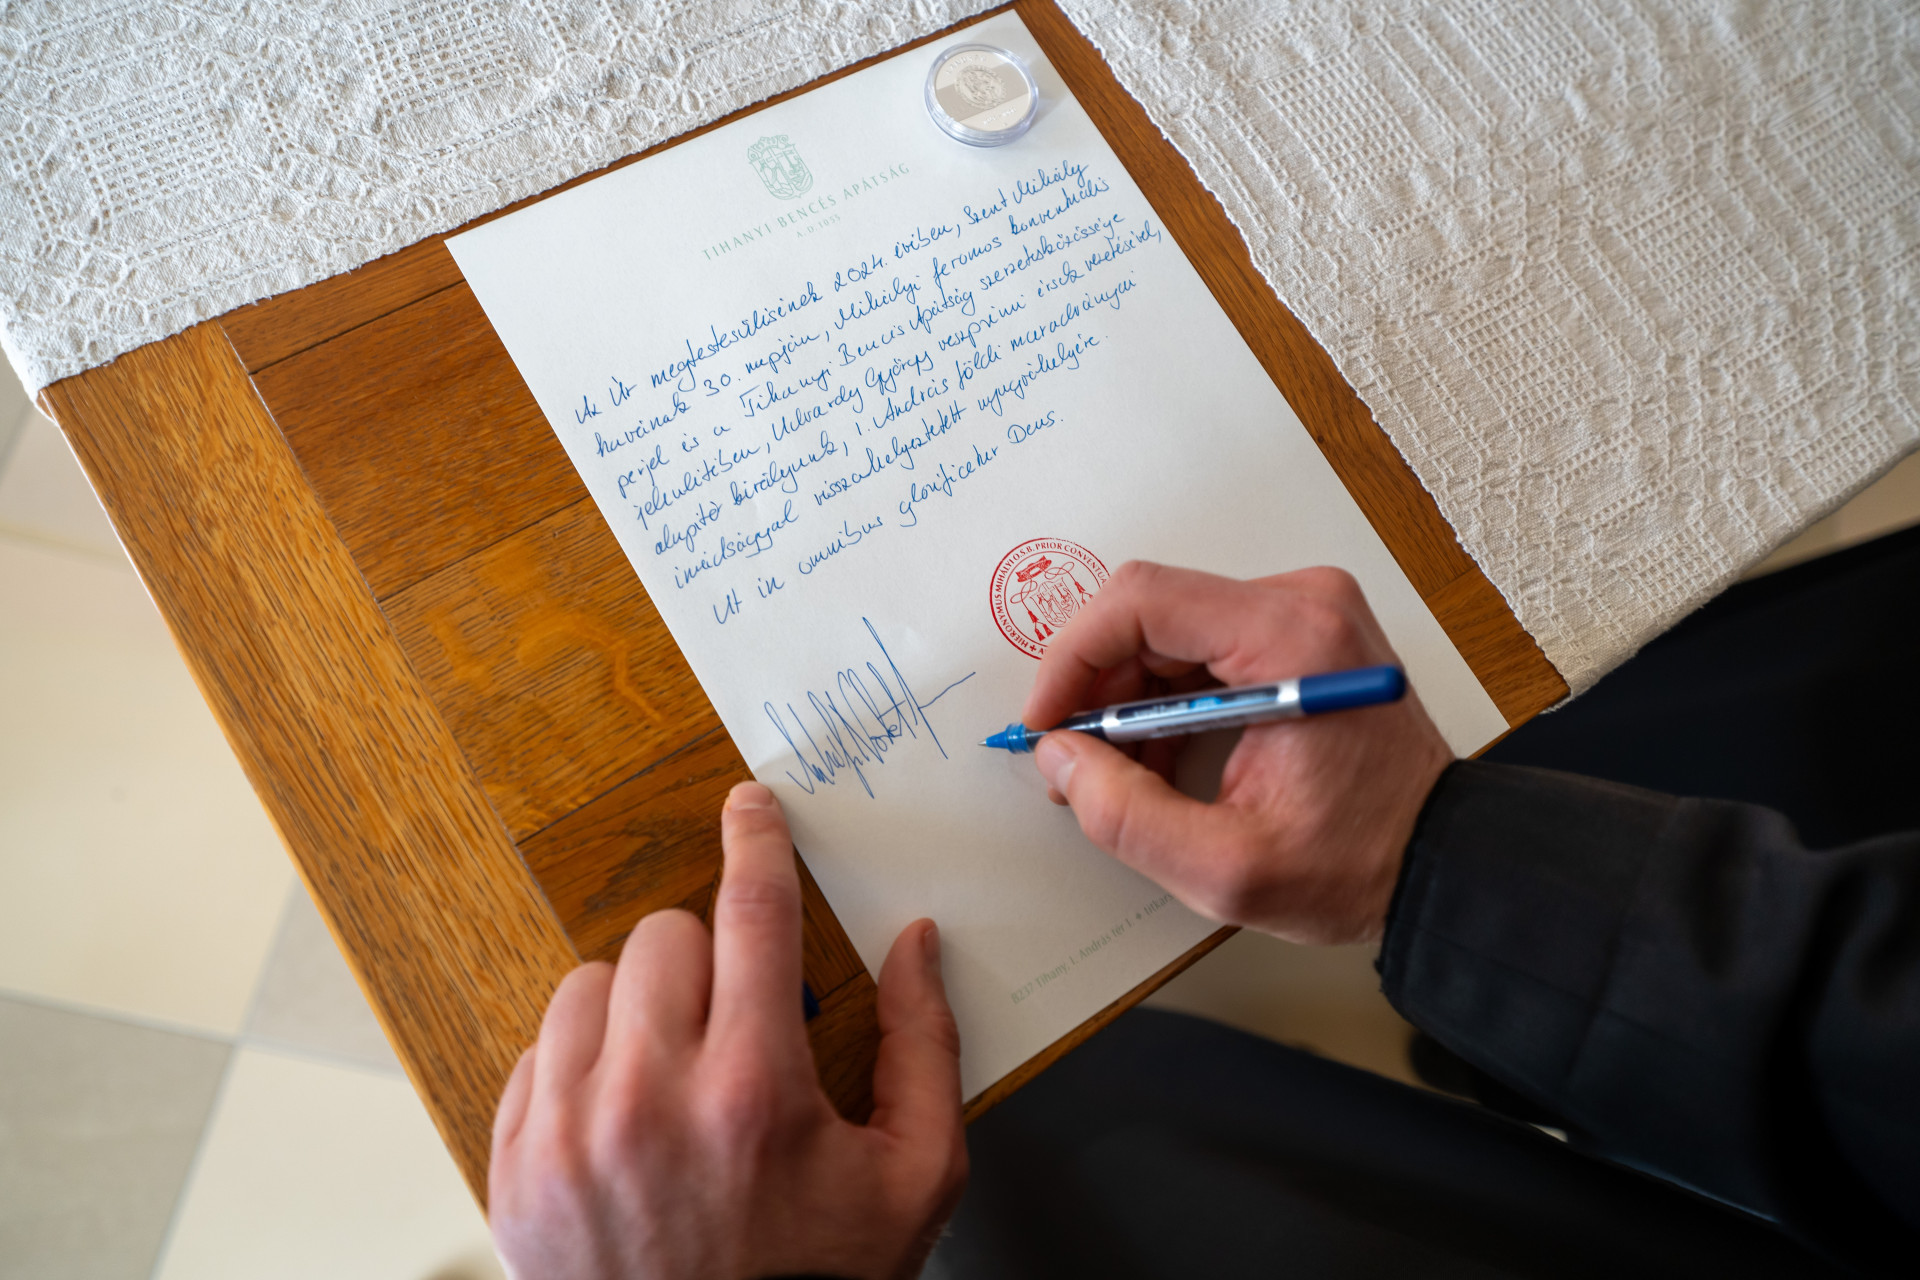 TIHANYI BENCÉS APÁTSÁG
A.D. 1055
Az Úr megtestesülésének 2024. évében, Szent Mihály
havának 30. napján, Mihályi Jeromos konventuális
perjel és a Tihanyi Bencés Apátság szerzetesközössége
jelenlétében, Udvardy György veszprémi érsek vezetésével,
alapító királyunk, I. András földi maradványai
imádsággal visszahelyeztetett nyugvóhelyére.
Ut in omnibus glorificetur Deus.
HIERONYMUS MIHÁLYI O.S.B. PRIOR CONVENTUA
8237 Tihany, I. András tér 1. ✦ titkar